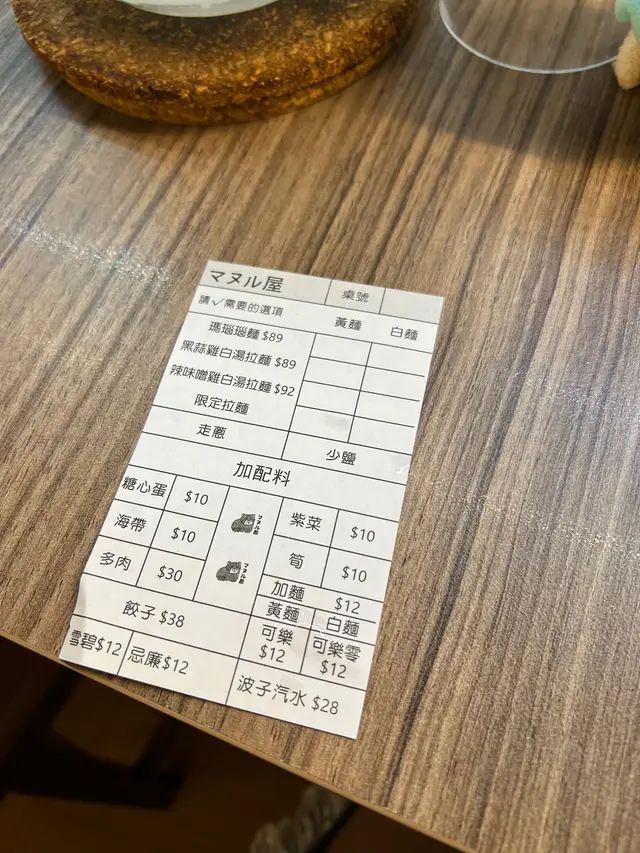 マヌル屋 桌號
請✓需要的選項 黃麵 白麵
瑪瑙瑙麵 $89
黑蒜雞白湯拉麵 $89
辣味噌雞白湯拉麵 $92
限定拉麵
走蔥 少鹽
加配料
糖心蛋 $10 マヌル屋 紫菜 $10
海帶 $10 筍 $10
多肉 $30 マヌル屋 加麵 $12
黃麵 白麵
餃子 $38 可樂 $12 可樂零 $12
雪碧 $12 忌廉 $12 波子汽水 $28